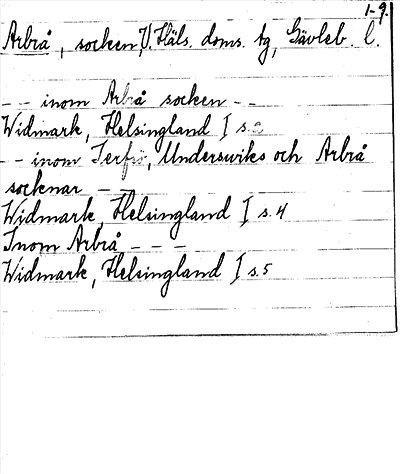 1-9.
Arbrå, socken, V. Häls. doms. tg, Gävleb. l.
-- inom Arbrå socken --
Widmark, Helsingland I s.
-- inom Jerfsö, Underswiks och Arbrå
socknar --
Widmark, Helsingland I s. 4
Inom Arbrå ---
Widmark, Helsingland I s. 5